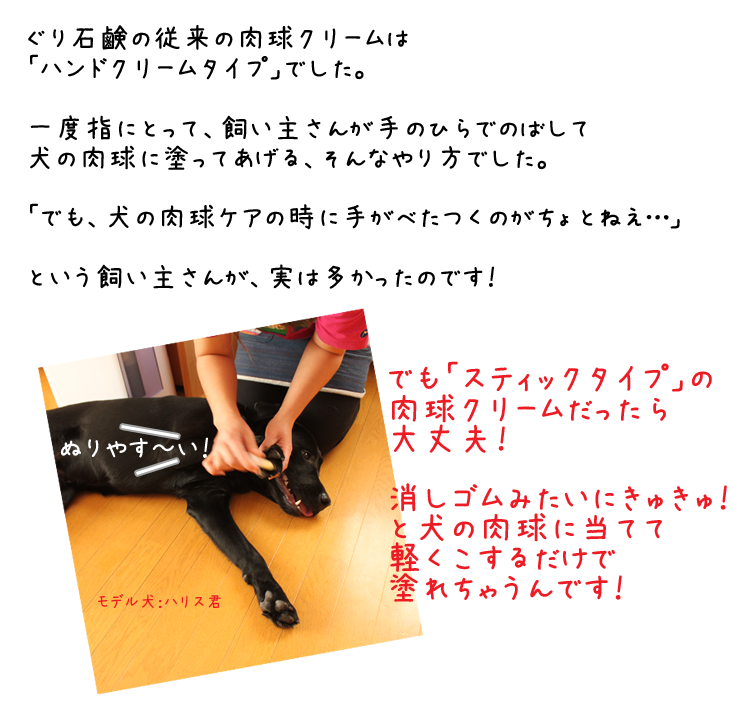 ぐり石鹸の従来の肉球クリームは
「ハンドクリームタイプ」でした。
一度指にとって、飼い主さんが手のひらでのばして
犬の肉球に塗ってあげる、そんなやり方でした。
「でも、犬の肉球ケアの時に手がべたつくのがちょとねえ…」
という飼い主さんが、実は多かったのです!
でも「スティックタイプ」の
肉球クリームだったら
大丈夫!
ぬりやす〜い!
消しゴムみたいにきゅきゅ!
と犬の肉球に当てて
軽くこするだけで
塗れちゃうんです!
モデル犬:ハリス君